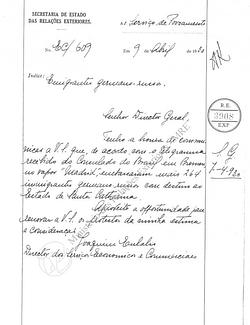 SECRETARIA DE ESTADO
DAS RELAÇÕES EXTERIORES.
Serviço de Povoamento
No. EC/609
Em 9 de Abril de 19
Indice: Emigrantes germano-russos.
Senhor Director Geral,
Tenho a honra de commu-
nicar a V.S. que, de accordo com o telegramma
recebido do Consulado do Brasil em Bremen
no vapor "Madrid", embarcaram mais 264
immigrantes germano-russos com destino ao
Estado de Santa Catharina.
Aproveito a opportunidade para
renovar a V.S. os protestos da minha estima
e consideração.
Joaquim Eulalio
Director dos Serviços Economicos e Commerciaes
R.E.
3908
EXP